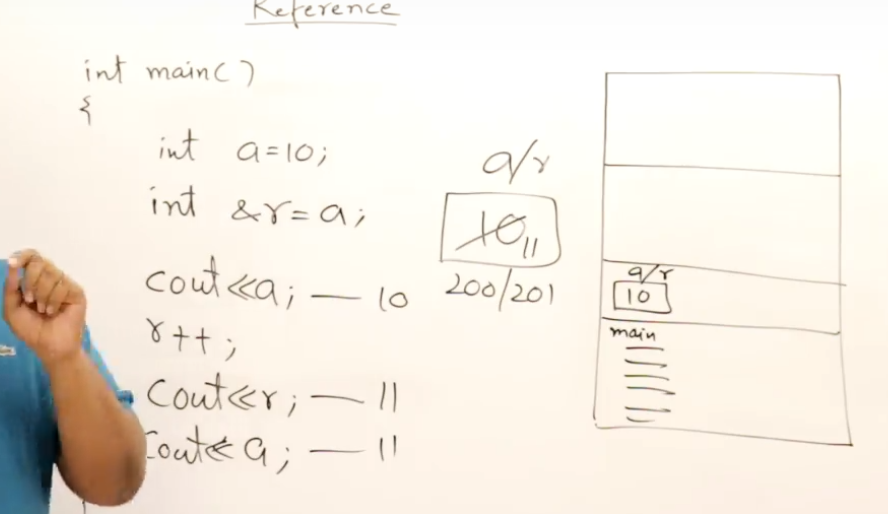 Reference
int main()
{
int a=10;
int &r=a;
cout<<a; — 10
r++;
cout<<r; — 11
cout<<a; — 11
a/r
10 11
200/201
a/r
10
main